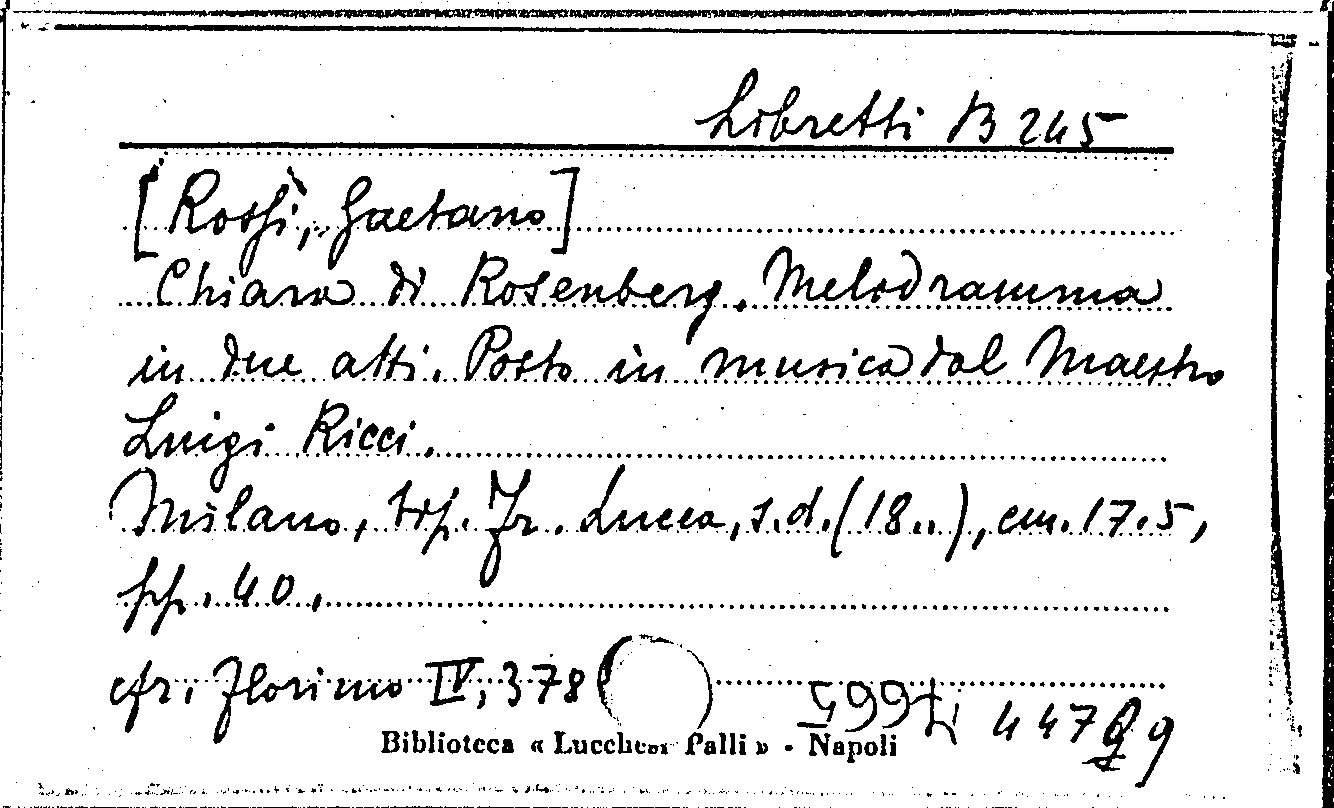 Libretti B 245
[Rossi, Gaetano]
Chiara di Rosenberg. Melodramma
in due atti. Posto in musica dal Maestro
Luigi Ricci.
Milano, tip. Fr. Lucca, s.d. (18..), cm. 17.5,
pp. 40.
cfr. Florimo IV, 378
Biblioteca « Lucchesi Palli » - Napoli